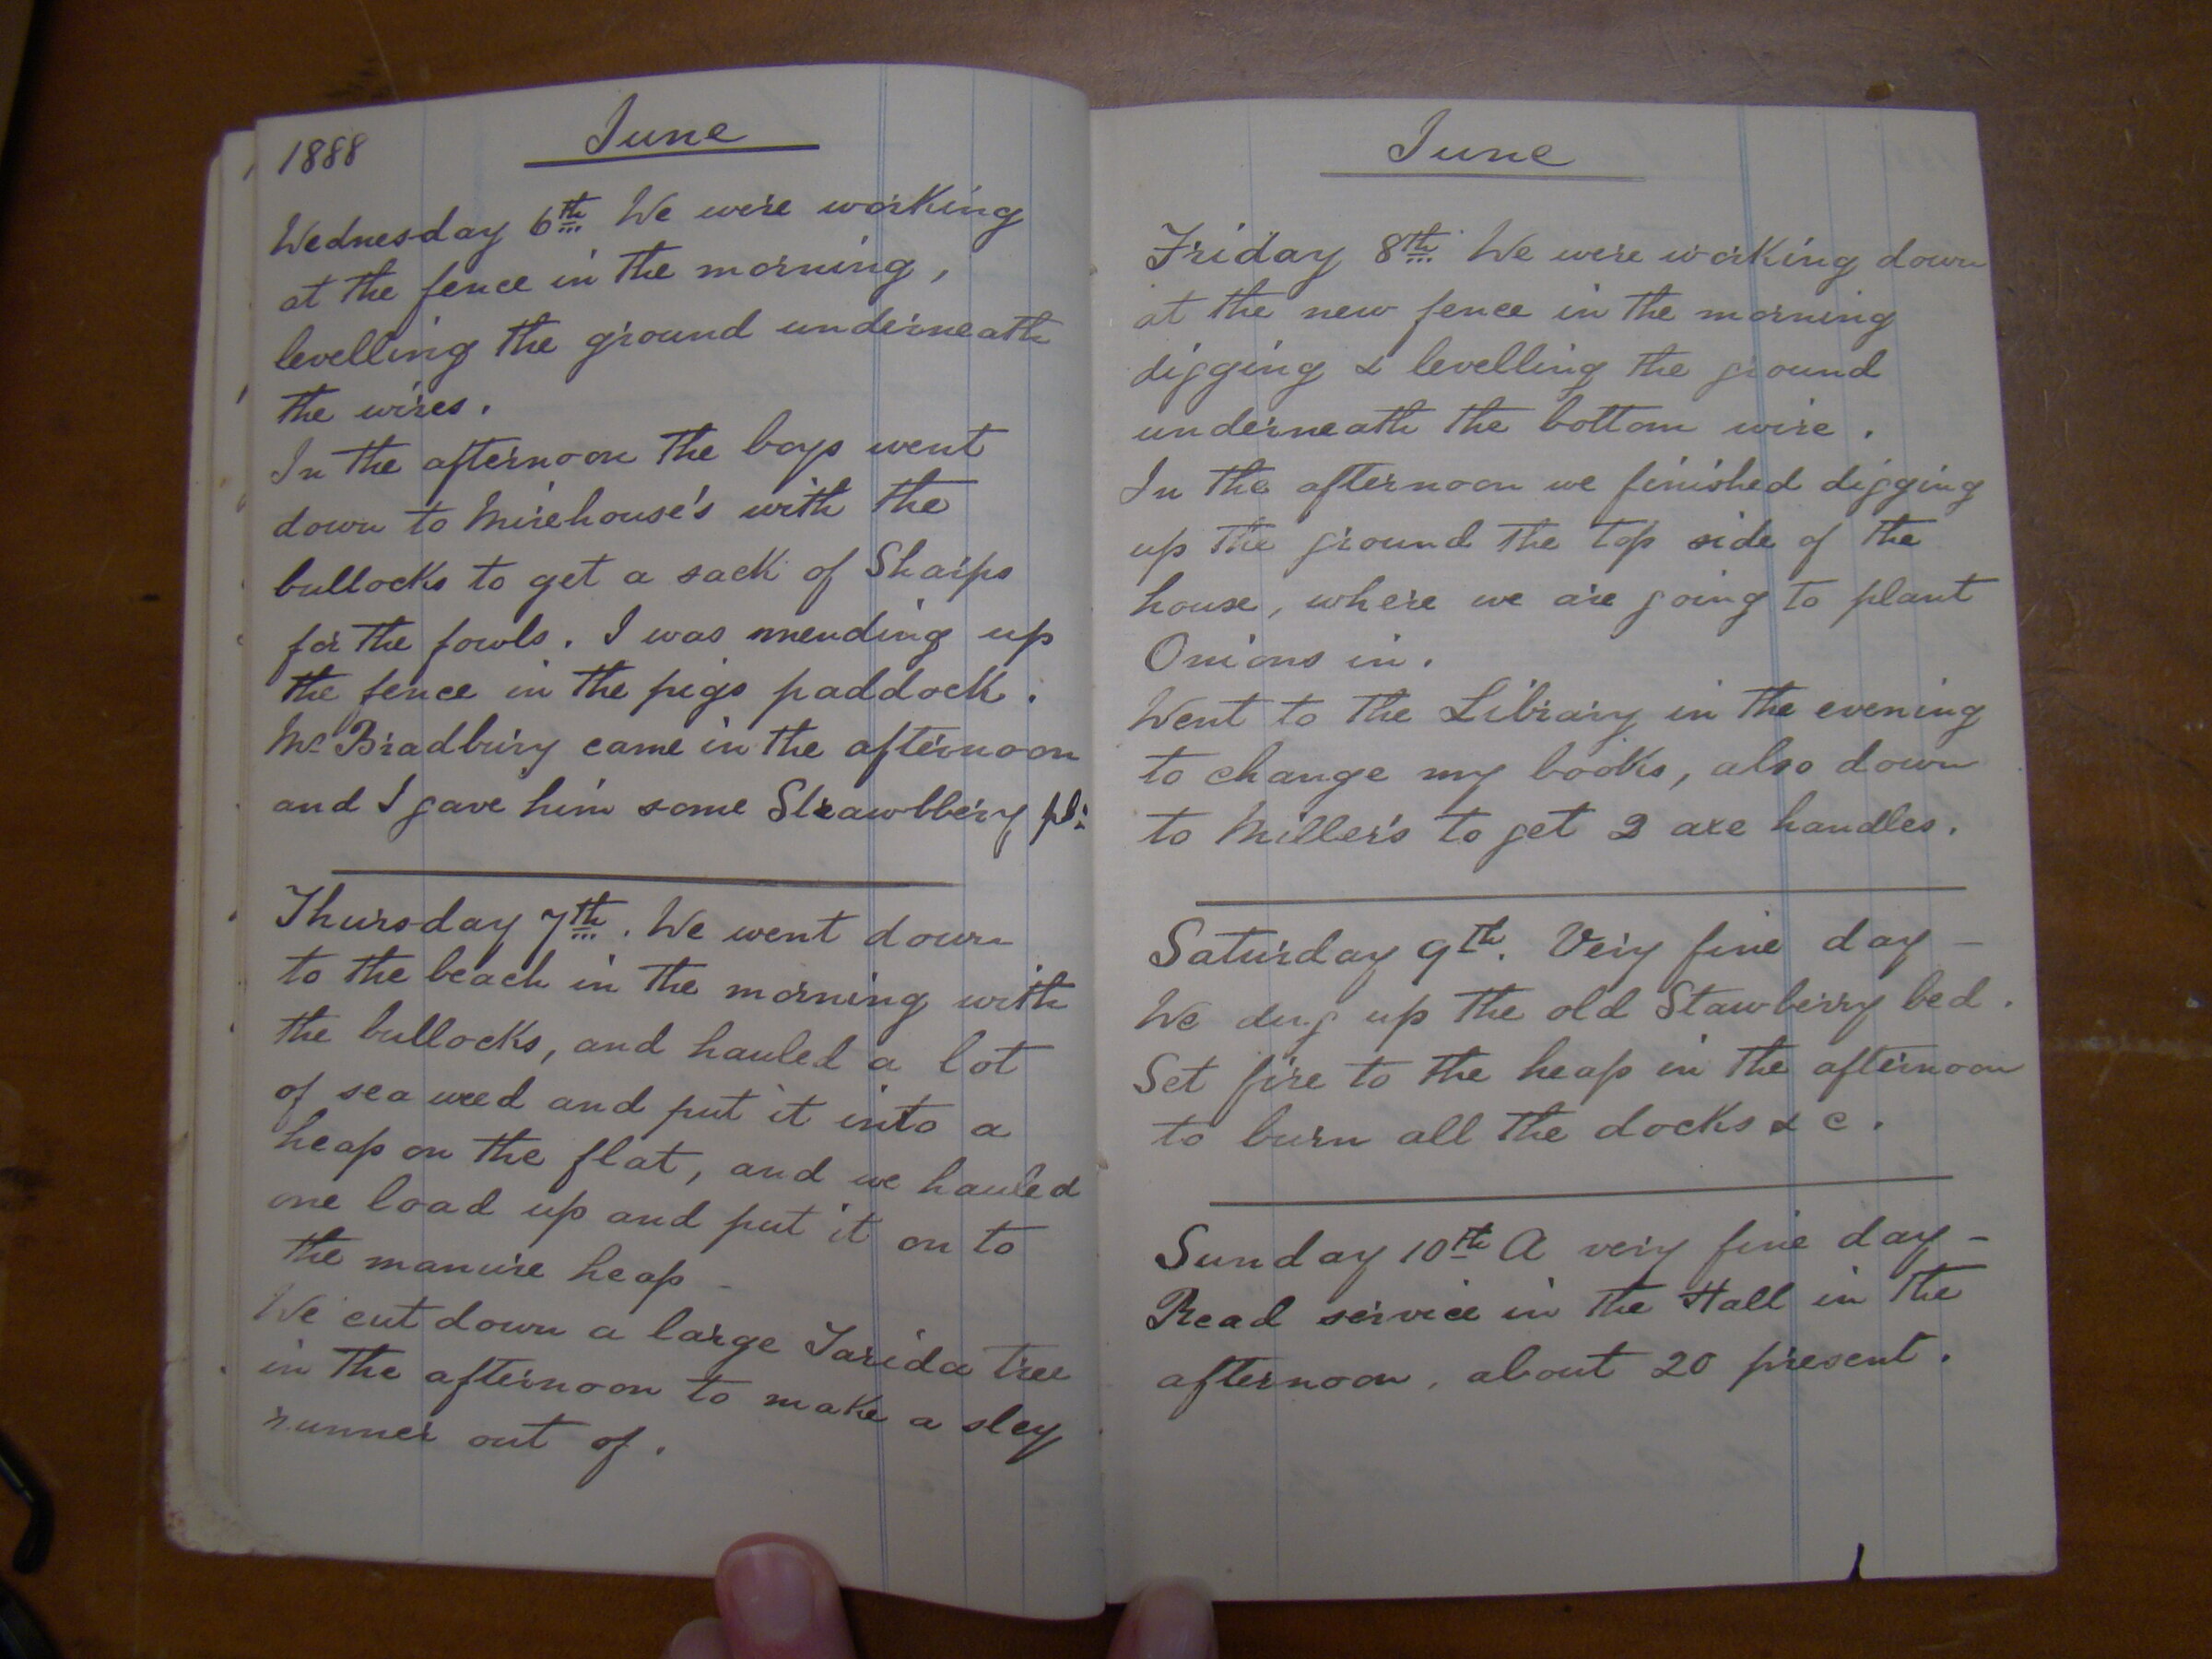 1888 June
Wednesday 6th We were working
at the fence in the morning,
levelling the ground underneath
the wires.
In the afternoon the boys went
down to Mirehouse's with the
bullocks to get a sack of Sharps
for the fowls. I was mending up
the fence in the pigs paddock.
Mr Bradbury came in the afternoon
and I gave him some Strawbbery
Thursday 7th. We went down
to the beach in the morning with
the bullocks, and hauled a lot
of sea weed and put it into a
heap on the flat, and we hauled
one load up and put it on to
the manure heap -
We cut down a large Tarida tree
in the afternoon to make a sley
runner out of.
June
Friday 8th We were working down
at the new fence in the morning
digging & levelling the ground
underneath the bottom wire.
In the afternoon we finished digging
up the ground the top side of the
house, where we are going to plant
Onions in.
Went to the Library in the evening
to change my books, also down
to Miller's to get 2 axe handles.
Saturday 9th. Very fine day -
We dug up the old Stawberry bed.
Set fire to the heap in the afternoon
to burn all the docks & c.
Sunday 10th A very fine day -
Read service in the Hall in the
afternoon, about 20 present.